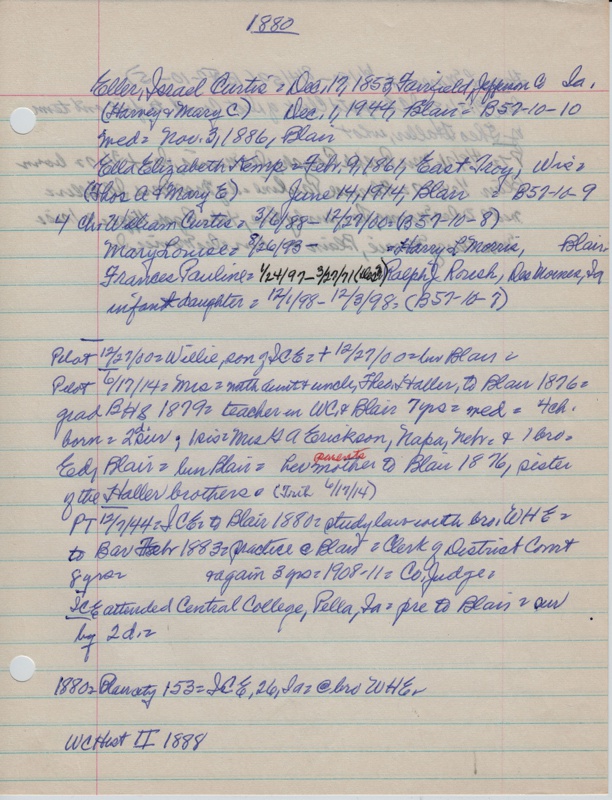 1880
Eller, Israel Curtis = Dec. 17, 1853, Fairfield, Jefferson Co Ia.
(Harvey & Mary C) Dec. 1, 1944, Blair = B57-10-10
med = Nov. 3, 1886, Blair
Ella Elizabeth Kemp = Feb. 9, 1861, East Troy, Wis =
(Thos A & Mary E) June 14, 1914, Blair = B57-10-9
4 ch: William Curtis = 3/6/88 - 12/27/00 = (B57-10-8)
Mary Louise = 9/26/93 - = Harry L Morris, Blair
Frances Pauline = 1/24/97 - 3/27/71 Ralph J Roush, Des Moines, Ia
infant daughter = 12/1/98 - 12/3/98 = (B57-10-7)
Pilot 12/27/00 = Willie, son of ICE = + 12/27/00 = bur Blair =
Pilot 6/17/14 = Mrs = with aunt & uncle, Theo. Haller, to Blair 1876 =
grad BHS 1879 = teacher in WC & Blair 7 yrs = med = 4 ch.
born = 2 sur; 1 sis = Mrs G A Erickson, Napa, Nebr. & 1 bro =
Ed, Blair = bur Blair = her parents mother to Blair 1876, sister
of the Haller brothers. (Trib 6/17/14)
PT 12/7/44 = ICE = to Blair 1880 = study law with bro. WHE =
to Bar Febr 1883 = practice @ Blair = Clerk of District Court
8 yrs & again 3 yrs = 1908-11 = Co, Judge =
ICE attended Central College, Pella, Ia = pre to Blair = sur
by 2 d. =
1880 = Blair city 153 = ICE, 26, Ia = @ bro WHE.
WCHist II 1888